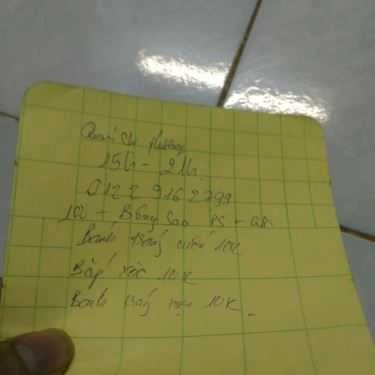 Quán chị Phương
15h - 21h
0122 9162799
100 - Bông Sao P5 - Q8
Bánh tráng cuốn 10K
Bắp xào 10K
Bánh tráng trộn 10K